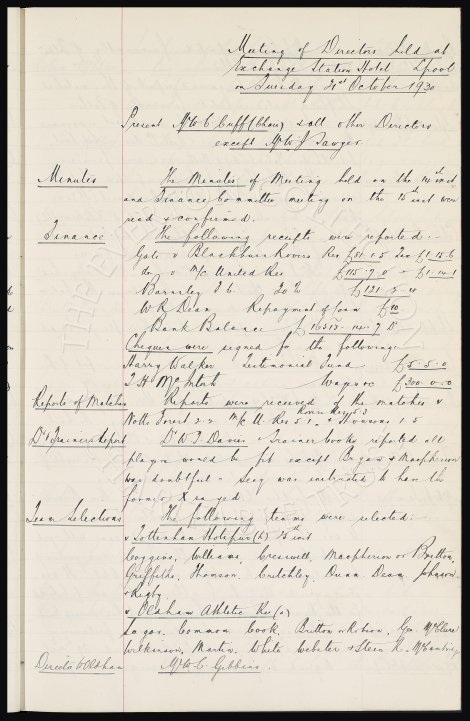 Meeting of Directors held at
Exchange Station Hotel L'pool
on Tuesday 21st October 1930
Present Mr W C Cuff (Chair) & all other Directors
except Mr W J Sawyer
Minutes The Minutes of Meeting held on the 14th inst
and Finance Committee meeting on the inst were
read & confirmed.
Finance The following receipts were reported:-
Gate v Blackburn Rovers Res £51.1.5 £1.15.6
do v M/c United Res £115.7.0 - £1.14.1
Barnsley F C 20% £121.5.
W R Dean Repayment of Loan £10
Bank Balance £
Cheques were signed for the following:-
Harry Walker Testimonial Fund £5.5.0
T H McIntosh Wages &c £300.0.0
Reports of Matches Reports were received of the matches v
Notts Forest 2.2 M/c U. Res 5.1
Dr & Trainers Report Dr W J Davies & Trainer books reported all
players would be fit except & Macpherson
was doubtful - Secy was instructed to have the
former X rayed
Team Selections The following teams were selected:-
v Tottenham Hotspur (h) 25th inst
Coggins, Williams, Cresswell, Macpherson or Britton,
Griffiths, Thomson, Critchley, Dunn, Dean, Johnson
& Rigby
v Oldham Athletic Res (a)
Sagar, Common, Cook, Britton or Robson, Gee, McClure
Wilkinson, Martin, White, Webster & Stein R. McCambridge
Director to Oldham Mr W C Gibbins.